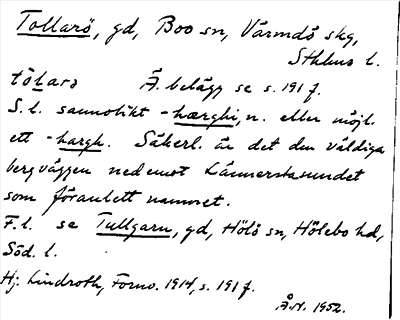 Tollarö, gd, Boo sn, Värmdö skg,
Sthlms l.
tòlarə Ä. belägg se s. 191 f.
S. l. sannolikt -hærghi, n. eller möjl.
ett -hargh. Säkerl. är det den väldiga
bergväggen nedemot Lännerstasundet
som föranlett namnet.
F. l. se Tullgarn, gd, Hölö sn, Hölebo hd,
Söd. l.
Hj. Lindroth, Fornv. 1914, s. 191 f.
Å.N. 1952.